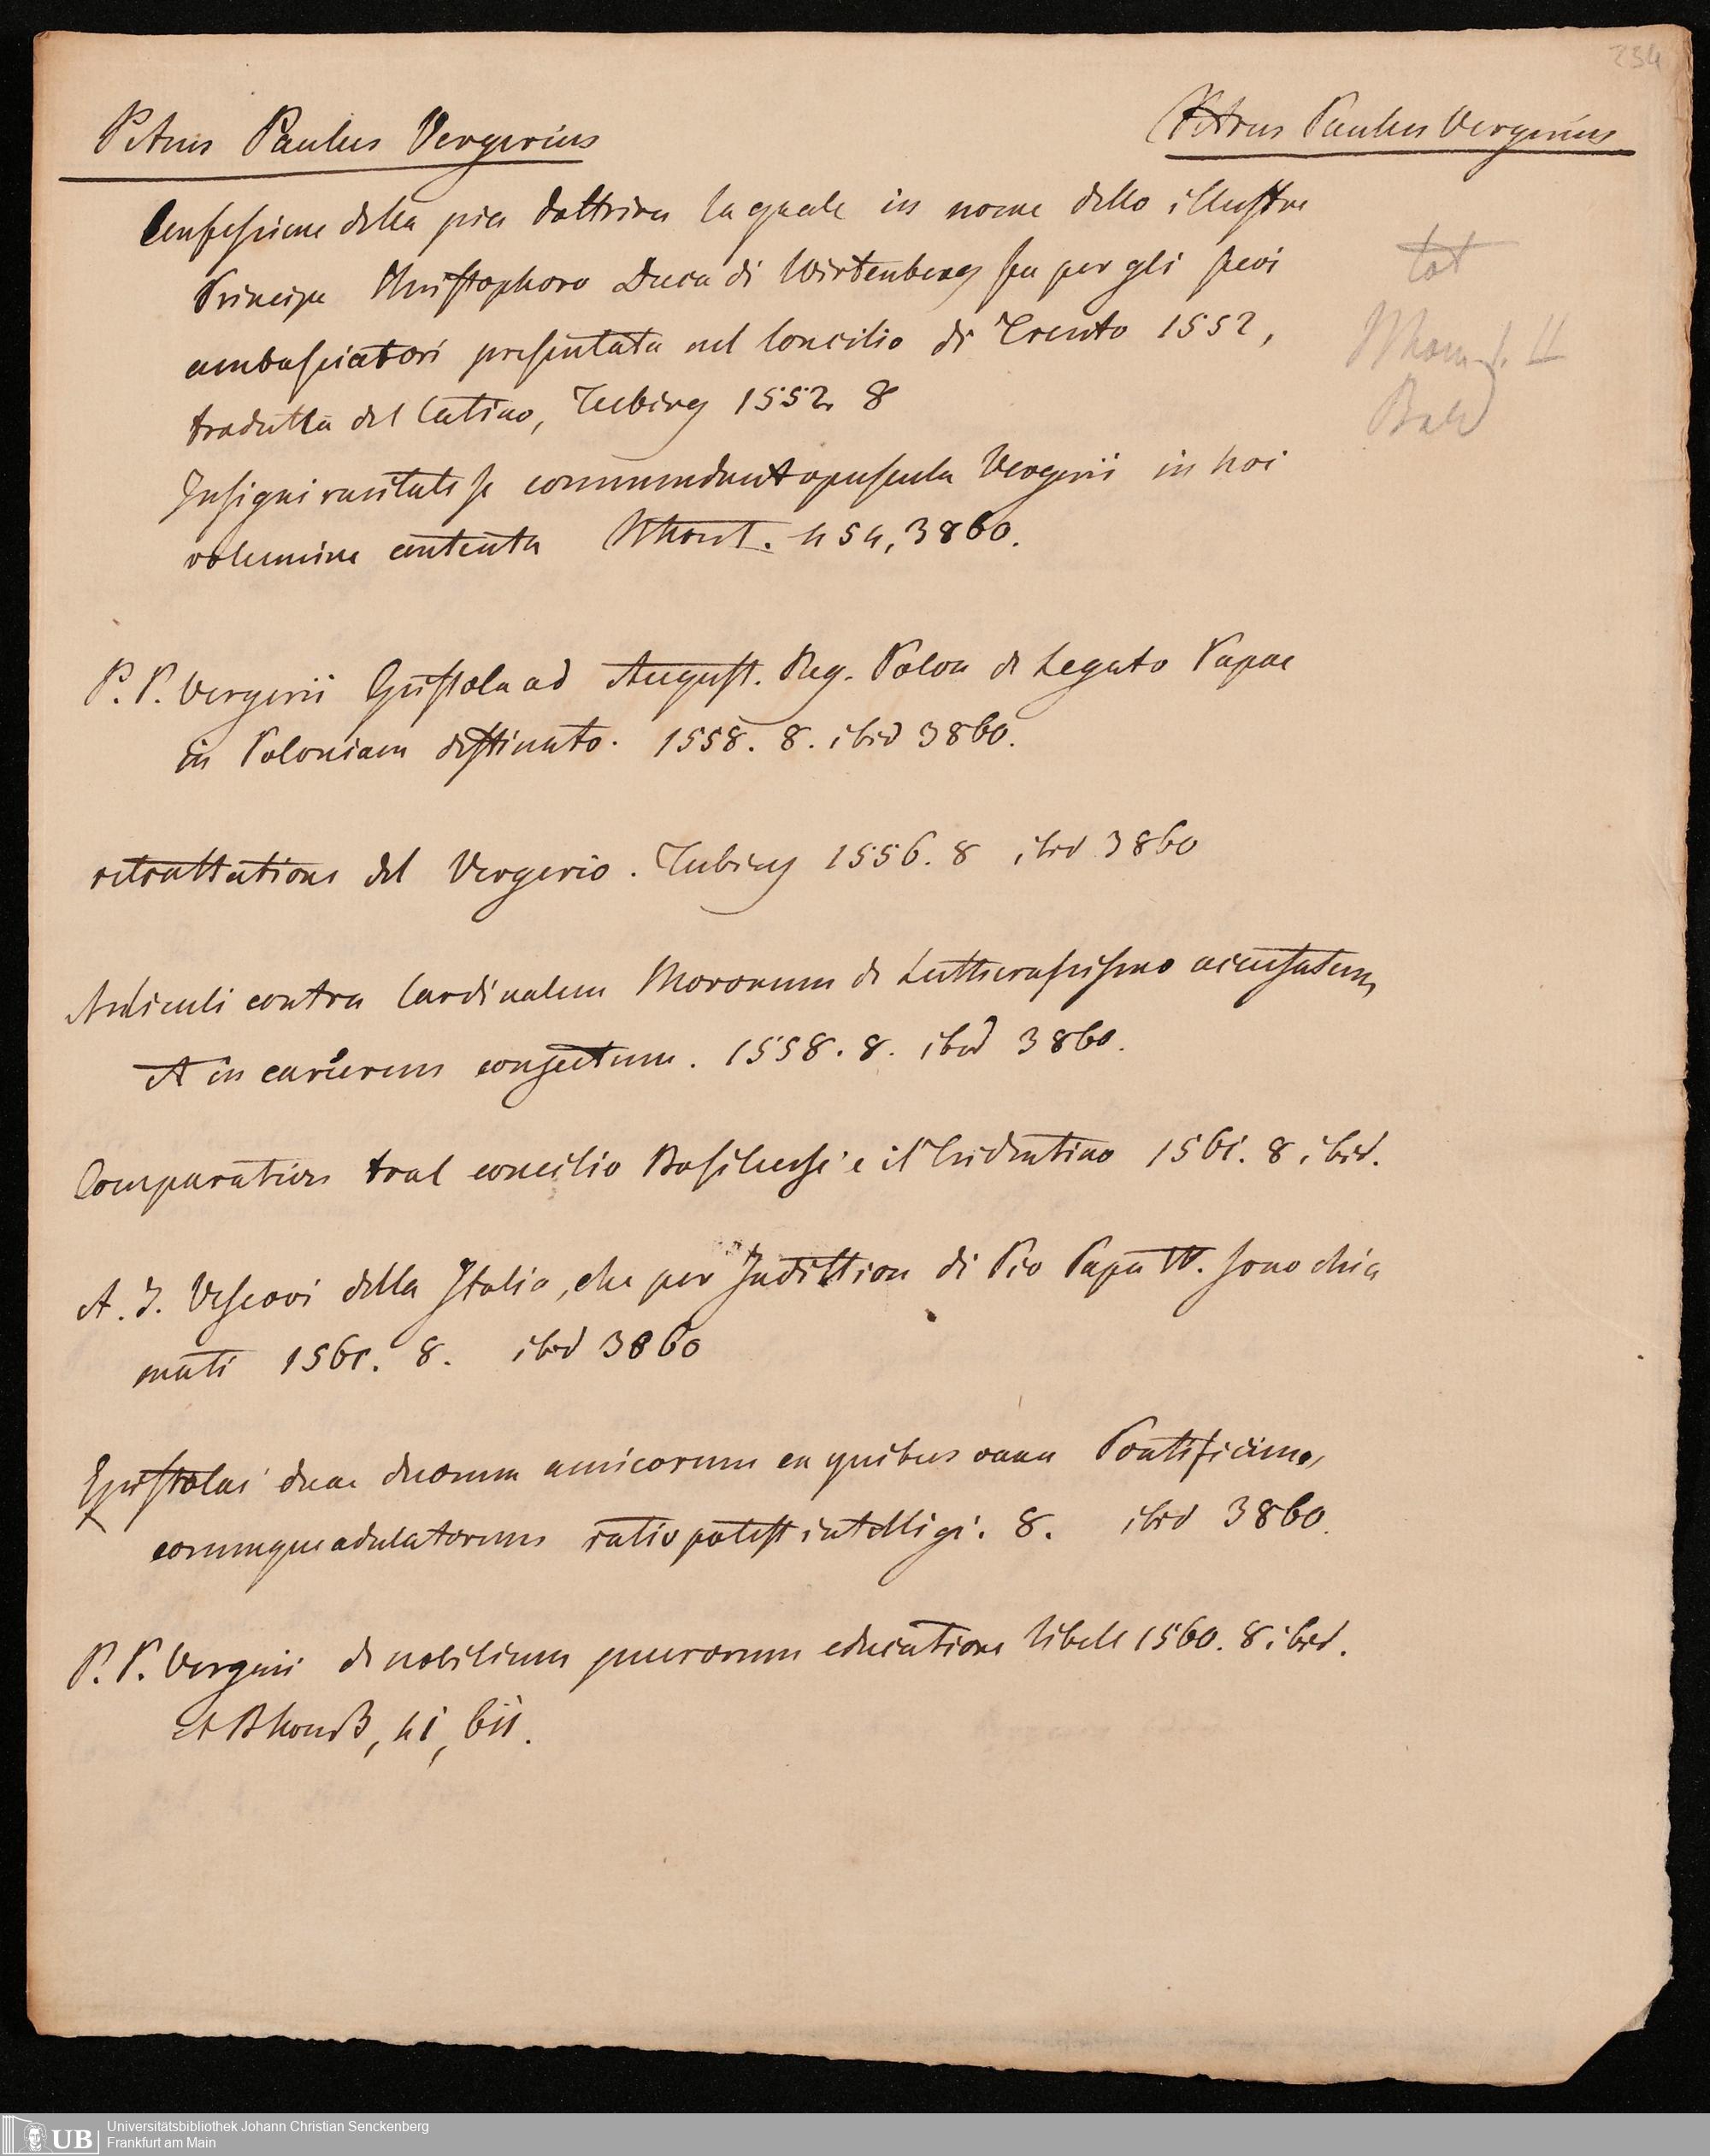 234
Petrus Paulus Vergerius
Petrus Paulus Vergerius
Confessione della pia dottrina la quale in nome dello illustre
Principe Christophoro Duca di Wirtenberg fu per gli suoi
ambasciatori presentata nel Concilio di Trento 1552,
tradutta del latino, Tubing 1552 8
Insigni raritate se commendant opuscula Vergerii in hoc
volumine contenta 3860.
tot
II
P. P. Vergerii Epistola ad August. Reg. Polon de Legato Papae
in Poloniam destinato. 1558. 8. ibid 3860.
retrattatione del Vergerio. Tubing 1556. 8 ibid 3860
Articuli contra Cardinalem Moronum de Lutheranismo accusatum,
et in carcerem conjectum. 1558. 8. ibid 3860.
Comparation tral concilio Basiliense e il Tridentino 1561. 8 ibid.
A. J. Vescovi della Italia, che per Indittion di Pio Papa IV. sono chia
mati 1561. 8. ibid 3860
Epistolae duae duorum amicorum ex quibus vana Pontificum,
eorumque adulatorum ratio potest intelligi. 8. ibid 3860.
P. P. Vergerii de nobilium puerorum educatione libell 1560. 8 ibid.
et
UB
Universitätsbibliothek Johann Christian Senckenberg
Frankfurt am Main